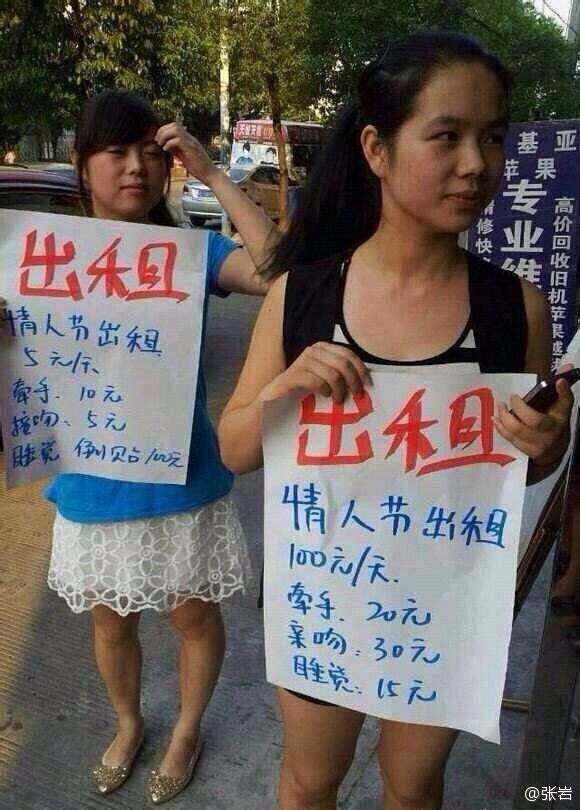 出租
情人节出租
5元/天
牵手. 10元
接吻: 5元
睡觉 倒贴100元
出租
情人节出租
100元/天.
牵手. 20元
亲吻: 30元
睡觉: 15元
基亚
苹果
专业维
高价回收旧机苹果
精修快
@张岩